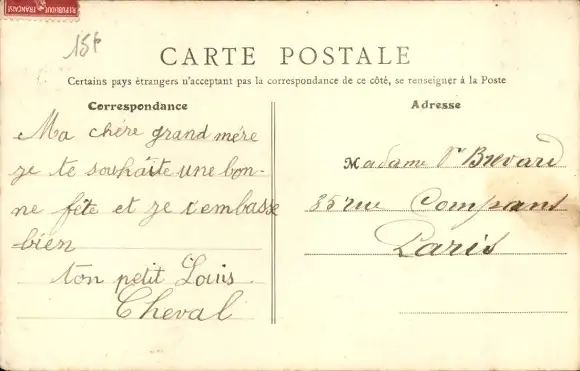 REPUBLIQUE FRANCAISE
15f
CARTE POSTALE
Certains pays étrangers n'acceptent pas la correspondance de ce côté, se renseigner à la Poste
Correspondance
Ma chére grand mére
je te souhaite une bon-
ne féte et je t'embasse
bien
ton petit Louis
Cheval
Adresse
Madame Vve Brevard
85 rue Compans
Paris